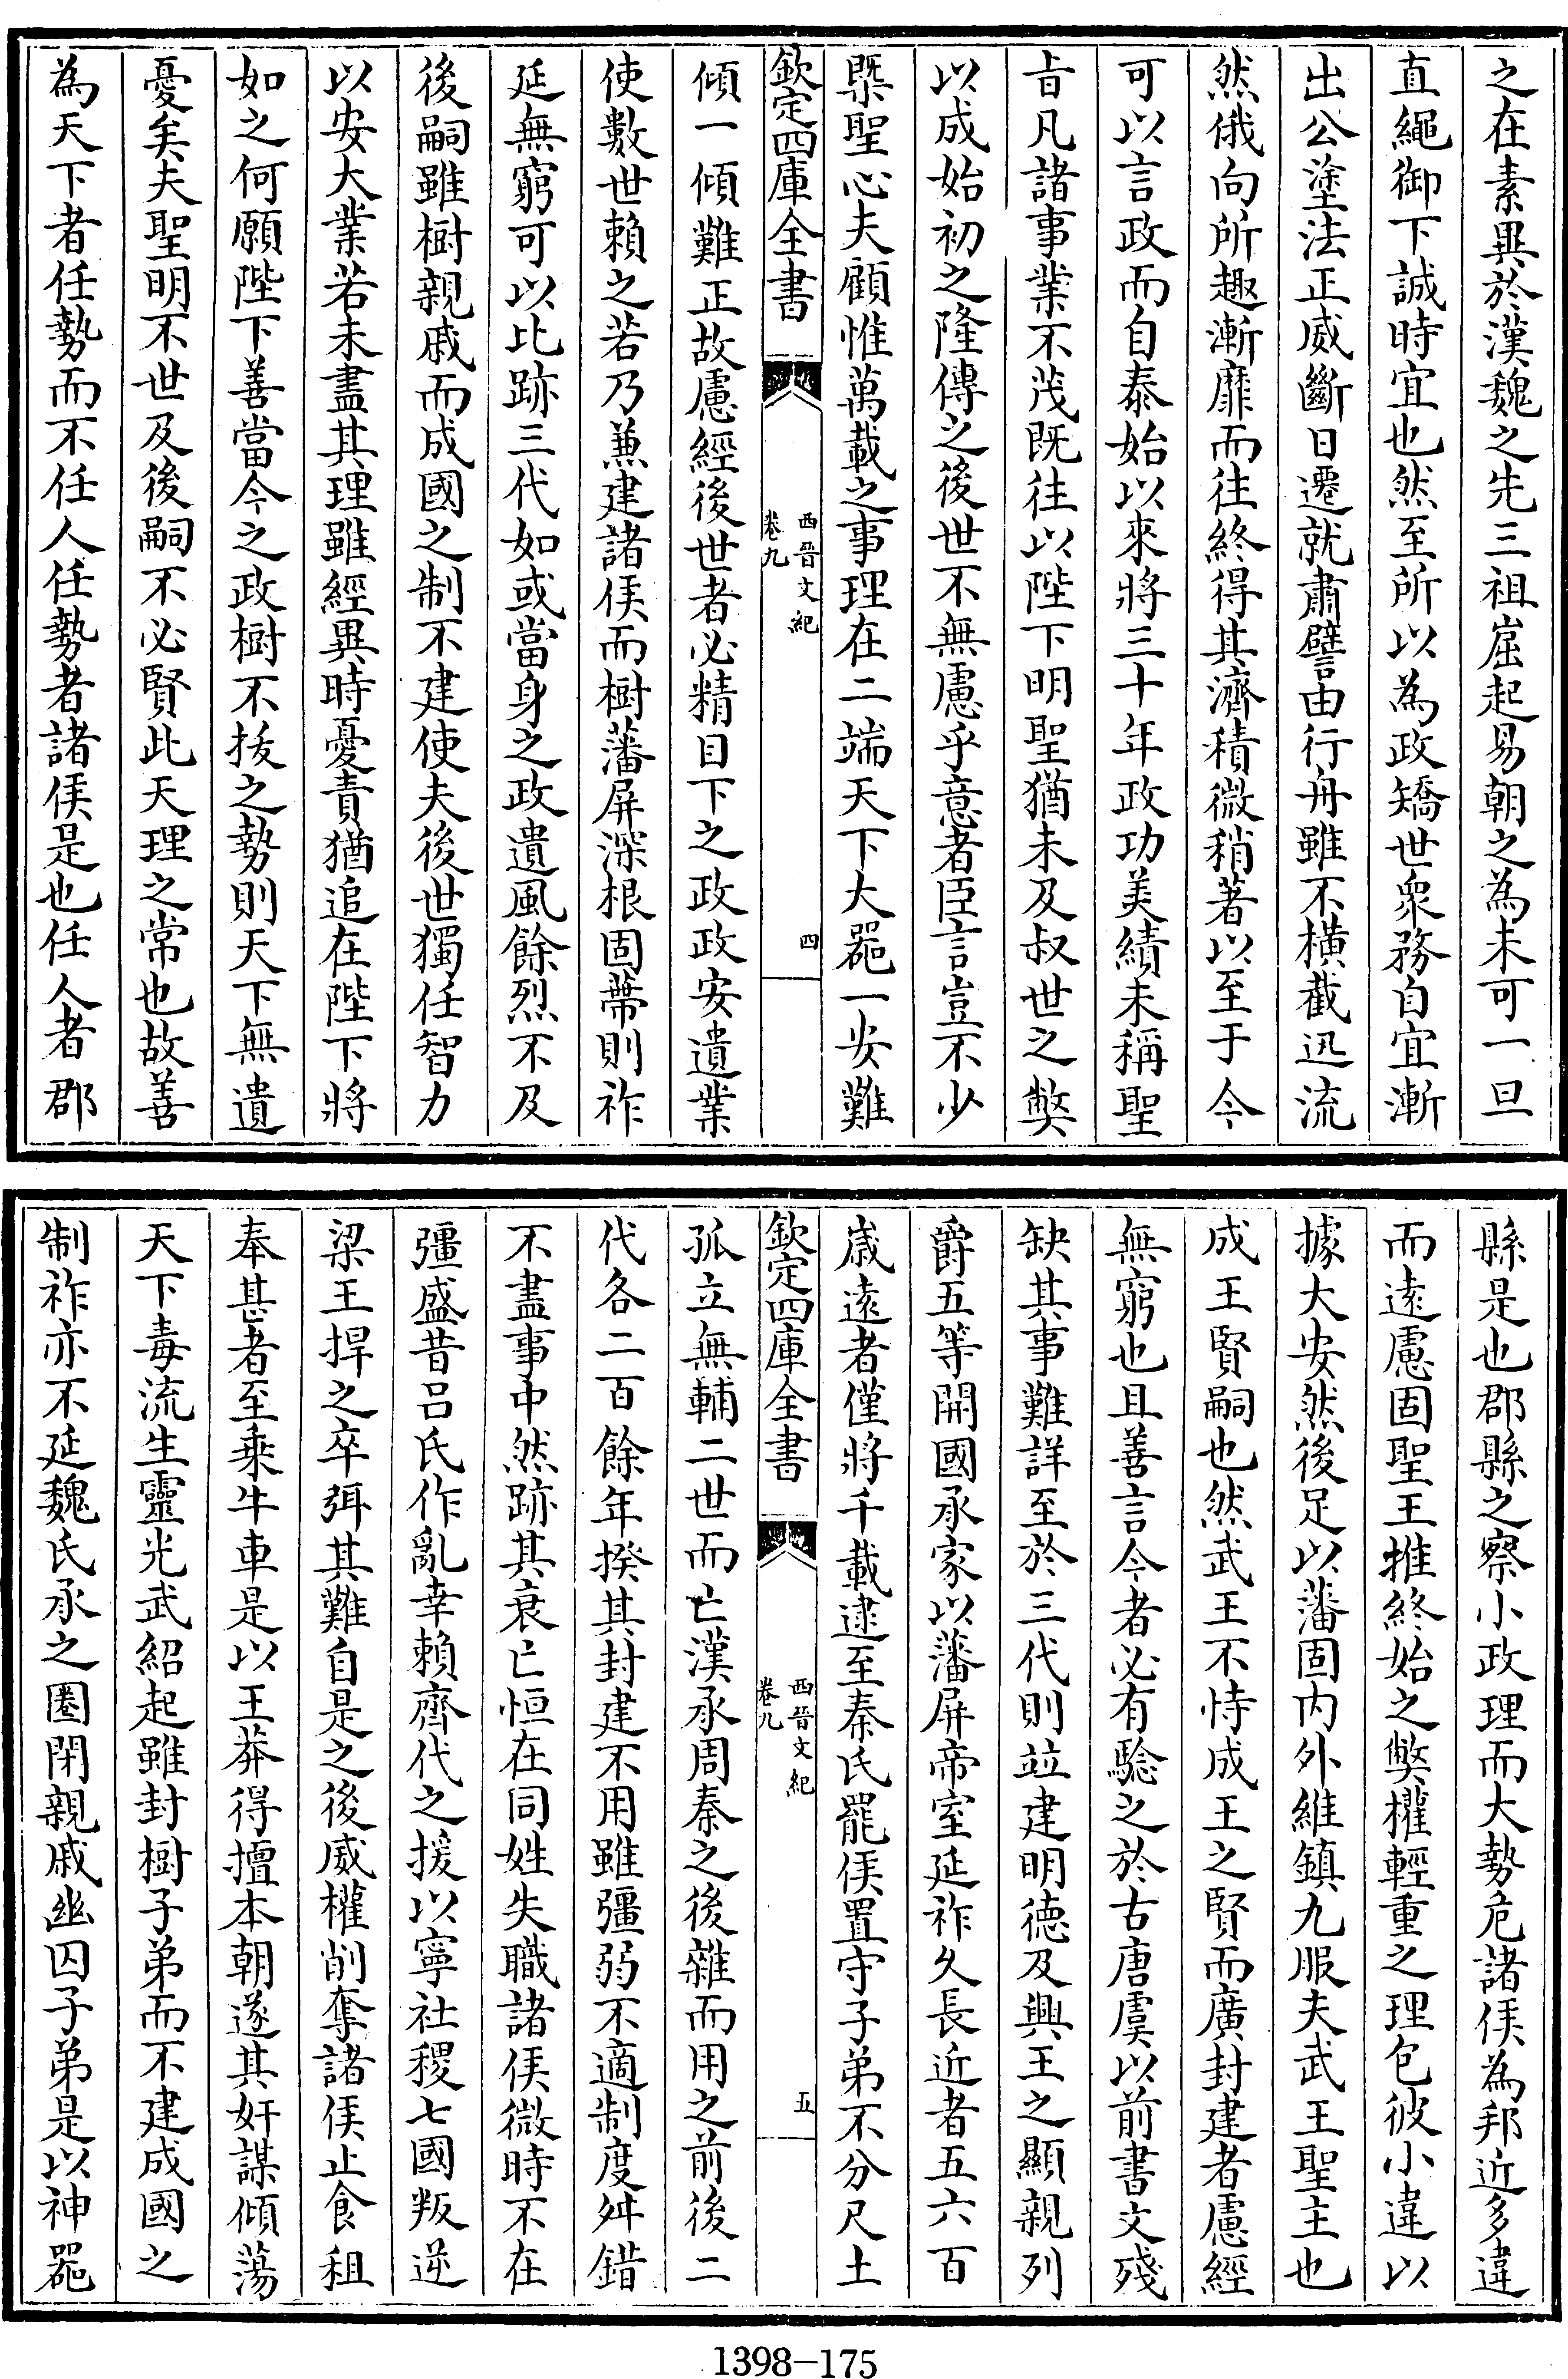 之在素異於漢魏之先三祖崛起易朝之為未可一旦
直繩御下誠時宜也然至所以為政矯世衆務自宜漸
出公塗法正威斷日遷就肅譬由行舟雖不横截迅流
然俄向所趣漸靡而往終得其濟積微稍著以至于今
可以言政而自泰始以來將三十年政功美績未稱聖
㫖凡諸事業不茂既往以陛下明聖猶未及叔世之弊
以成始初之隆傳之後世不無慮乎意者臣言豈不少
槩聖心夫顧惟萬載之事理在二端天下大器一安難
欽定四庫全書
西晉文紀
卷九
四
傾一傾難正故慮經後世者必精目下之政政安遺業
使數世賴之若乃兼建諸侯而樹藩屏深根固蔕則祚
延無窮可以比跡三代如或當身之政遺風餘烈不及
後嗣雖樹親戚而成國之制不建使夫後世獨任智力
以安大業若未盡其理雖經異時憂責猶追在陛下將
如之何願陛下善當今之政樹不拔之勢則天下無遺
憂矣夫聖明不世及後嗣不必賢此天理之常也故善
為天下者任勢而不任人任勢者諸侯是也任人者郡
縣是也郡縣之察小政理而大勢危諸侯為邦近多違
而遠慮固聖王推終始之弊權輕重之理包彼小違以
據大安然後足以藩固内外維鎮九服夫武王聖主也
成王賢嗣也然武王不恃成王之賢而廣封建者慮經
無窮也且善言今者必有驗之於古唐虞以前書文殘
缺其事難詳至於三代則竝建明德及興王之顯親列
爵五等開國承家以藩屏帝室延祚久長近者五六百
歲遠者僅將千載逮至秦氏罷侯置守子弟不分尺土
欽定四庫全書
西晉文紀
卷九
五
孤立無輔二世而亡漢承周秦之後雜而用之前後二
代各二百餘年揆其封建不用雖彊弱不適制度舛錯
不盡事中然跡其衰亡恒在同姓失職諸侯微時不在
彊盛昔吕氏作亂幸賴齊代之援以寧社稷七國叛逆
梁王捍之卒弭其難自是之後威權削奪諸侯止食租
奉甚者至乘牛車是以王莽得擅本朝遂其奸謀傾蕩
天下毒流生靈光武紹起雖封樹子弟而不建成國之
制祚亦不延魏氏承之圈閉親戚幽囚子弟是以神器
1398—175